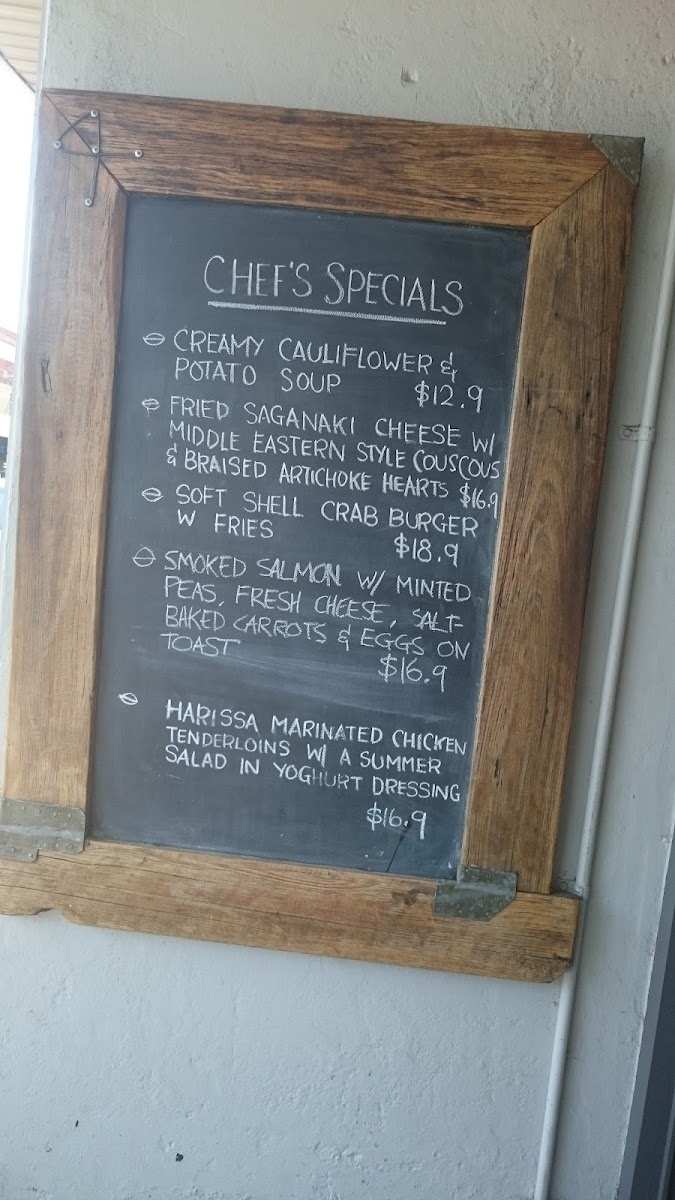 CHEF'S SPECIALS
CREAMY CAULIFLOWER &
POTATO SOUP $12.9
FRIED SAGANAKI CHEESE W/
MIDDLE EASTERN STYLE COUSCOUS
& BRAISED ARTICHOKE HEARTS $16.9
SOFT SHELL CRAB BURGER
W FRIES $18.9
SMOKED SALMON W/ MINTED
PEAS, FRESH CHEESE, SALT-
BAKED CARROTS & EGGS ON
TOAST $16.9
HARISSA MARINATED CHICKEN
TENDERLOINS W/ A SUMMER
SALAD IN YOGHURT DRESSING
$16.9